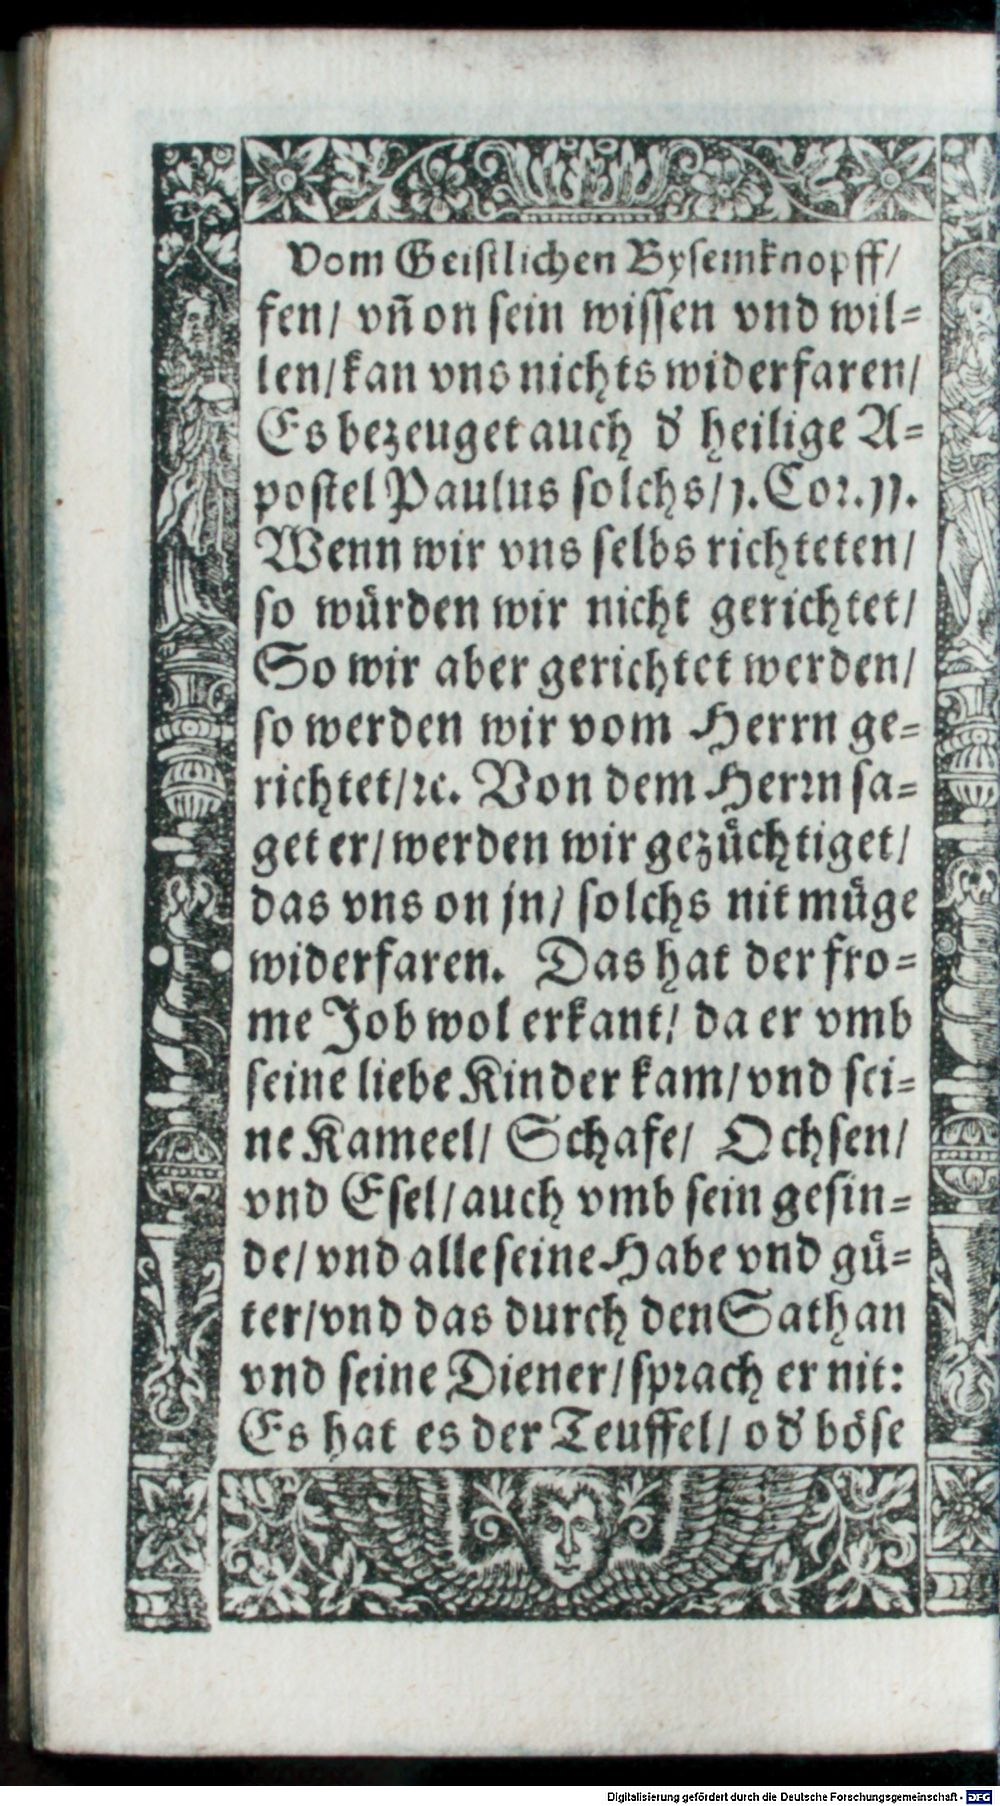 Vom Geistlichen Bysemknopff/
fen/ vñ on sein wissen vnd wil=
len/ kan vns nichts widerfaren/
Es bezeuget auch d' heilige A=
postel Paulus solchs/ 1. Cor. 11.
Wenn wir vns selbs richteten/
so würden wir nicht gerichtet/
So wir aber gerichtet werden/
so werden wir vom Herrn ge=
richtet/ ꝛc. Von dem Herrn sa=
get er/ werden wir gezüchtiget/
das vns on jn/ solchs nit müge
widerfaren. Das hat der fro=
me Job wol erkant/ da er vmb
seine liebe Kinder kam/ vnd sei=
ne Kameel/ Schafe/ Ochsen/
vnd Esel/ auch vmb sein gesin=
de/ vnd alle seine Habe vnd gü=
ter/ vnd das durch den Sathan
vnd seine Diener/ sprach er nit:
Es hat es der Teuffel/ od' böse
Digitalisierung gefördert durch die Deutsche Forschungsgemeinschaft - DFG